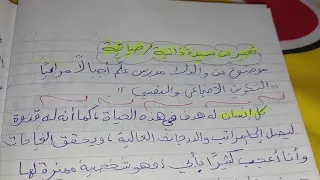 تعبير عن سيرة ذاتية / حياتية
موضوع عن والدك مدرس علم أجيالاً
"التكوين الاجتماعي والنفسي"
كل إنسان له هدف في هذه الحياة، كما أنه له قدوة
ليصل إلى المراتب والدرجات العالية، ويحقق النجاحات
وأنا أعجب كثيرًا بأبي، فهو شخصية مميزة لها